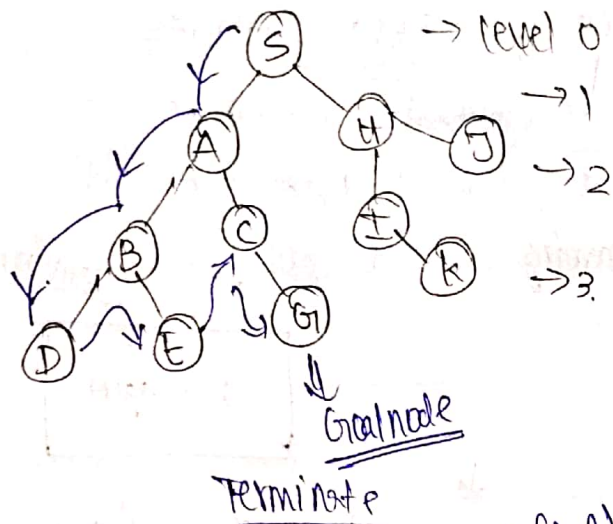 S → level 0
→ 1
A H J
→ 2
B C I
K → 3.
D E G
Goalnode
Terminate